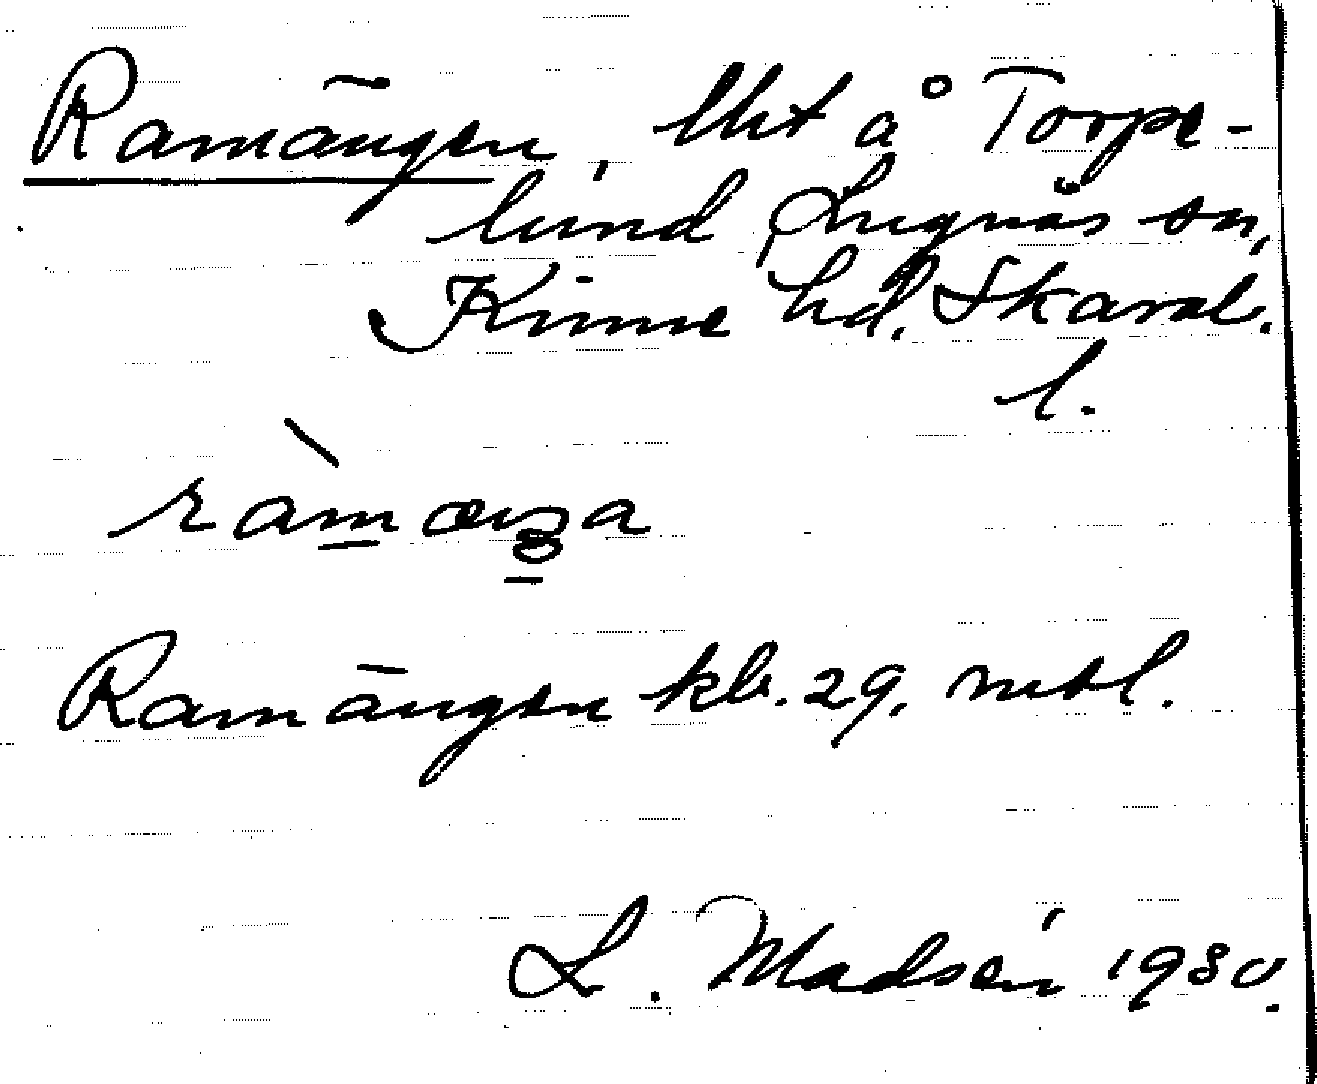 Ramängen, lht å Torpe-
lund, Lugnås sn,
Kinne hd. Skarab.
l.
Ramängen kb. 29, mtl.
L. Madsén 1930.